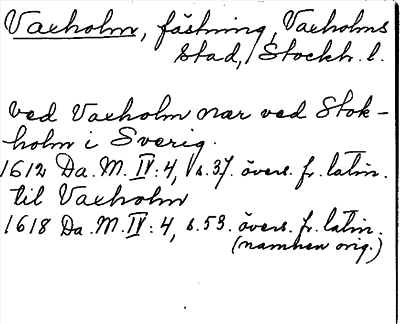 Vaxholm, fästning, Vaxholms
stad, Stockh. l.
ved Vaxholm nær ved Stok-
holm i Sverig.
1612 Da. M. IV: 4, s. 37. övers. fr. latin.
til Vaxholm
1618 Da. M. IV: 4, s. 53. övers. fr. latin.
(namnen orig.)